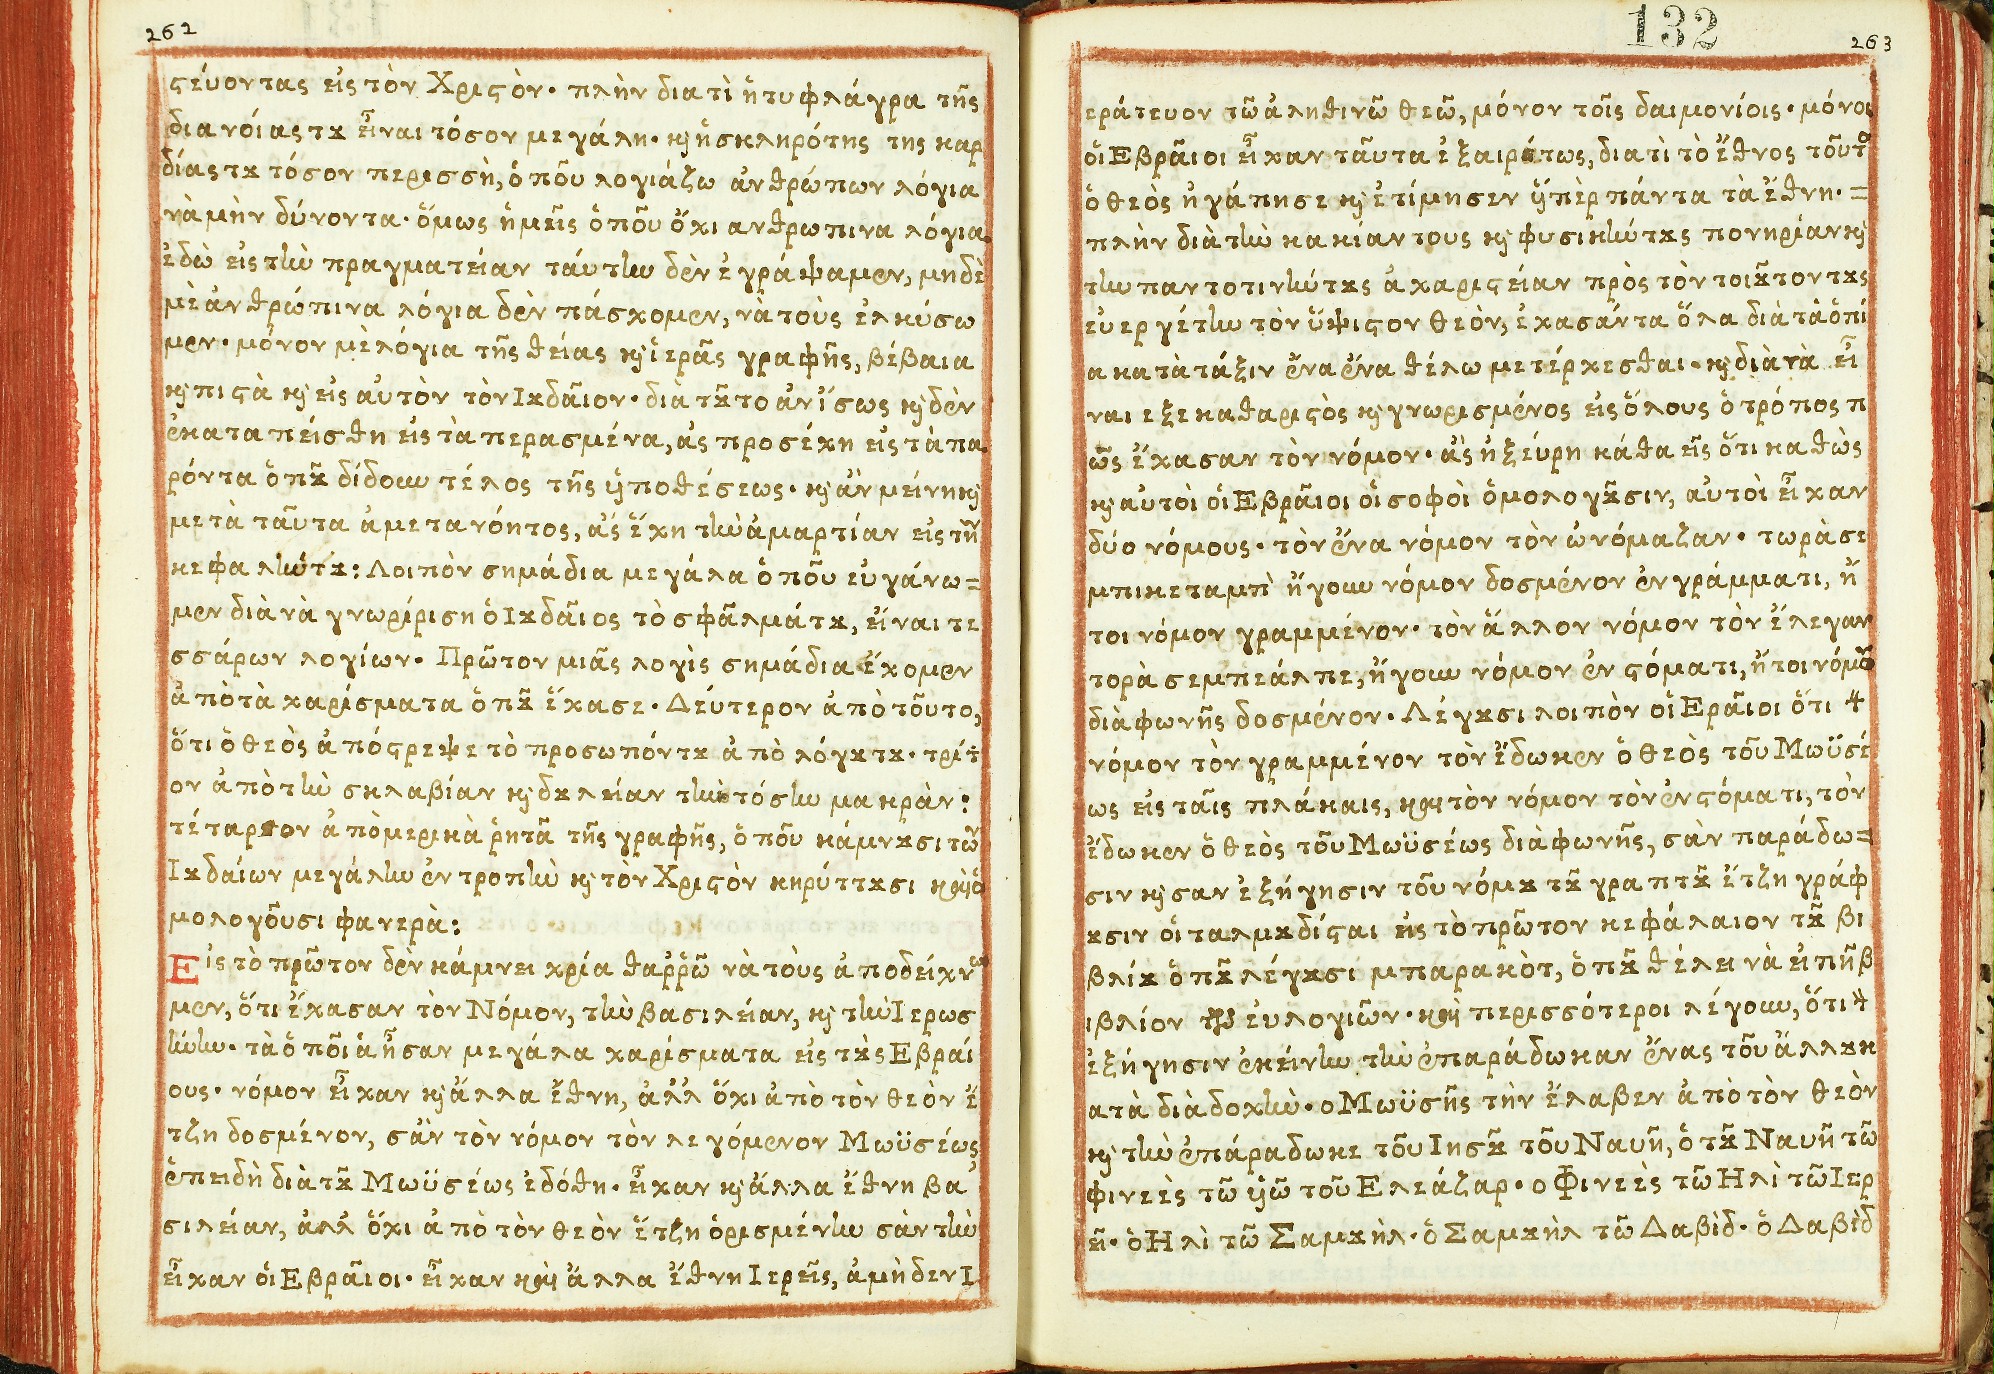 262
ϛεύοντας εἰς τὸν Χριϛὸν· πλὴν διατὶ ἡ τυφλάγρα τῆς
διανοίας τȣ εἶναι τόσον μεγάλη· κ̀ ἡ σκληρότης της καρ
δίας τȣ τόσον περισσὴ, ὁποῦ λογιάζω ἀνθρώπων λόγια
νὰ μὴν δύνονται· ὅμως ἡμεῖς ὁποῦ ὄχι ανθρωπινα λόγια
ἐδὼ εἰς τὴν πραγματείαν τάυτην δὲν ἐγράψαμεν, μηδὲ
μὲ ἀνθρώπινα λόγια δὲν πάσχομεν, νὰ τοὺς ἑλκύσω
μεν· μόνον μὲ λόγια τῆς θείας κ̀ ἱερᾶς γραφῆς, βέβαια
κ̀ πιϛὰ κ̀ εἰς αὐτὸν τὸν Ιȣδαῖον· διὰ τȣ͂το ἀν ἴσως κ̀ δὲν
ἐκαταπείσθη εἰς τὰ περασμένα, ἀς προσέχη εἰς τὰ πα
ρόντα ὁπȣ͂ δίδουν τέλος τῆς ὑποθέσεως· κ̀ ἀν μείνη κ̀
μετὰ ταῦτα ἀμετανόητος, ἀς ἔχη τὴν ἁμαρτίαν εἰς τὴν
κεφαλήν τȣ: Λοιπὸν σημάδια μεγάλα ὁποῦ ευγάνω=
μεν διὰ νὰ γνωρίριση ὁ Ιȣδαῖος τὸ σφᾶλμά τȣ, εἶναι τε
σσάρων λογίων· Πρῶτον μιᾶς λογὶς σημάδια ἔχομεν
ἀπὸ τὰ χαρίσματα ὁπȣ͂ ἔχασε· Δεύτερον ἀπὸ τοῦτο,
ὅτι ὁ θεὸς ἀπόϛρεψε τὸ προσωπόν τȣ ἀπὸ λόγȣ τȣ· τρίτ
ον ἀπὸ τὴν σκλαβίαν κ̀ δȣλείαν τὴν τόσην μακρὰν:
τέταρτον ἀπὸ μερικὰ ῥητὰ τῆς γραφῆς, ὁποῦ κάμνȣσι τῶν
Ιȣδαίων μεγάλην ἐντροπὴν κ̀ τὸν Χριϛὸν κηρύττȣσι καὶ ὁ
μολογοῦσι φανερὰ:
Εἰς τὸ πρῶτον δὲν κάμνει χρία θαῤῥῶ νὰ τοὺς ἀποδείχνȣ
μεν, ὅτι ἔχασαν τὸν Νόμον, τὴν βασιλείαν, κ̀ τὴν Ιερωσ
ύνην· τὰ ὁποῖα ἦσαν μεγάλα χαρίσματα εἰς τȣ̀ς Εβραί
ους· νόμον εἶχαν κ̀ ἄλλα ἔθνη, ἀλλ ὄχι ἀπὸ τὸν θεὸν ἔ
τζη δοσμένον, σὰν τὸν νόμον τὸν λεγόμενον Μωϋσέως
ἐπειδὴ διὰ τȣ͂ Μωϋσέως ἐδόθη· εἶχαν κ̀ ἄλλα ἔθνη βα
σιλείαν, ἀλλ ὄχι ἀπὸ τὸν θεὸν ἔτζη ὁρισμένην σὰν τὴν
εἶχαν οἱ Εβραῖοι· εἶχαν καὶ ἄλλα ἔθνη Ιερεῖς, ἀμὴ δεν Ι
132
263
εράτευον τῶ ἀληθινῶ θεῶ, μόνον τοῖς δαιμονίοις· μόνοι
οἱ Εβραῖοι εἶχαν ταῦτα ἐξαιρέτως, διατὶ τὸ ἔθνος τοῦτο
ὁ θεὸς ἠγάπησε κ̀ ἐτίμησεν ὑπὲρ πάντα τὰ ἔθνη·=
πλὴν διὰ τὴν κακίαν τους κ̀ φυσικήν τȣς πονηρίαν κ̀
τὴν παντοτινήν τȣς ἀχαριϛείαν πρὸς τὸν τοιȣ͂τον τȣς
εὐεργέτην τὸν ὕψιϛον θεὸν, ἐχασάν τα ὅλα διὰ τὰ ὁποῖ
α κατὰ τάξιν ἕνα ἕνα θέλω μετέρχεσθαι· κ̀ διὰ νὰ εἶ
ναι εξεκαθαριϛὸς κ̀ γνωρισμένος εἰς ὅλους ὁ τρόπος π
ῶς ἔχασαν τὸν νόμον· ἀς ἠξεύρη κάθα εἷς ὅτι καθὼς
κ̀ αὐτοὶ οἱ Εβραῖοι οἱ σοφοὶ ὁμολογȣ͂σιν, αὐτοὶ εἶχαν
δύο νόμους· τὸν ἕνα νόμον τὸν ὠνόμαζαν· τωρὰ σε
μπικεταμπ̀ ἤγουν νόμον δοσμένον ἐν γράμματι, ἤ
τοι νόμον γραμμένον· τὸν ἄλλον νόμον τὸν ἔλεγαν
τορὰ σεμπεάλπε, ἤγουν νόμον ἐν ϛόματι, ἤτοι νόμον
διὰ φωνῆς δοσμένον· Λέγȣσι λοιπὸν οἱ Εραῖοι ὅτι τὸν
νόμον τὸν γραμμένον τὸν ἔδωκεν ὁ θεὸς τοῦ Μωϋσέ
ως εἰς ταῖς πλάκαις, καὶ τὸν νόμον τὸν ἐν ϛόματι, τὸν
ἔδωκεν ὁ θεὸς τοῦ Μωϋσέως διὰ φωνῆς, σὰν παράδω=
σιν κ̀ σαν ἐξήγησιν τοῦ νόμȣ τȣ͂ γραπτȣ͂ ἔτζη γράφ
ȣσιν οἱ ταλμȣδίϛαι εἰς τὸ πρῶτον κεφάλαιον τȣ͂ βι
βλίȣ ὁπȣ͂ λέγȣσι μπαρακὸτ, ὁπȣ͂ θέλει νὰ εἰπῆ β
ιβλίον τῶν ἐυλογιῶν· καὶ περισσότεροι λέγουν, ὅτι τὴν
ἐξήγησιν ἐκείνην τὴν ἐπαράδωκαν ἕνας τοῦ ἄλλȣ κ
ατὰ διὰδοχὴν· ο Μωϋσῆς τὴν ἔλαβεν ἀπὸ τὸν θεὸν
κ̀ τὴν ἐπάραδωκε τοῦ Ιησȣ͂ τοῦ Ναυῆ, ὁ τȣ͂ Ναυῆ τῶ
φινεὲς τῶ ὑῶ τοῦ Ελεάζαρ· ο Φινεὲς τῶ Ηλὶ τῶ Ιερ
εῖ· ὁ Ηλὶ τῶ Σαμȣὴλ· ὁ Σαμȣὴλ τῶ Δαβὶδ· ὁ Δαβὶδ